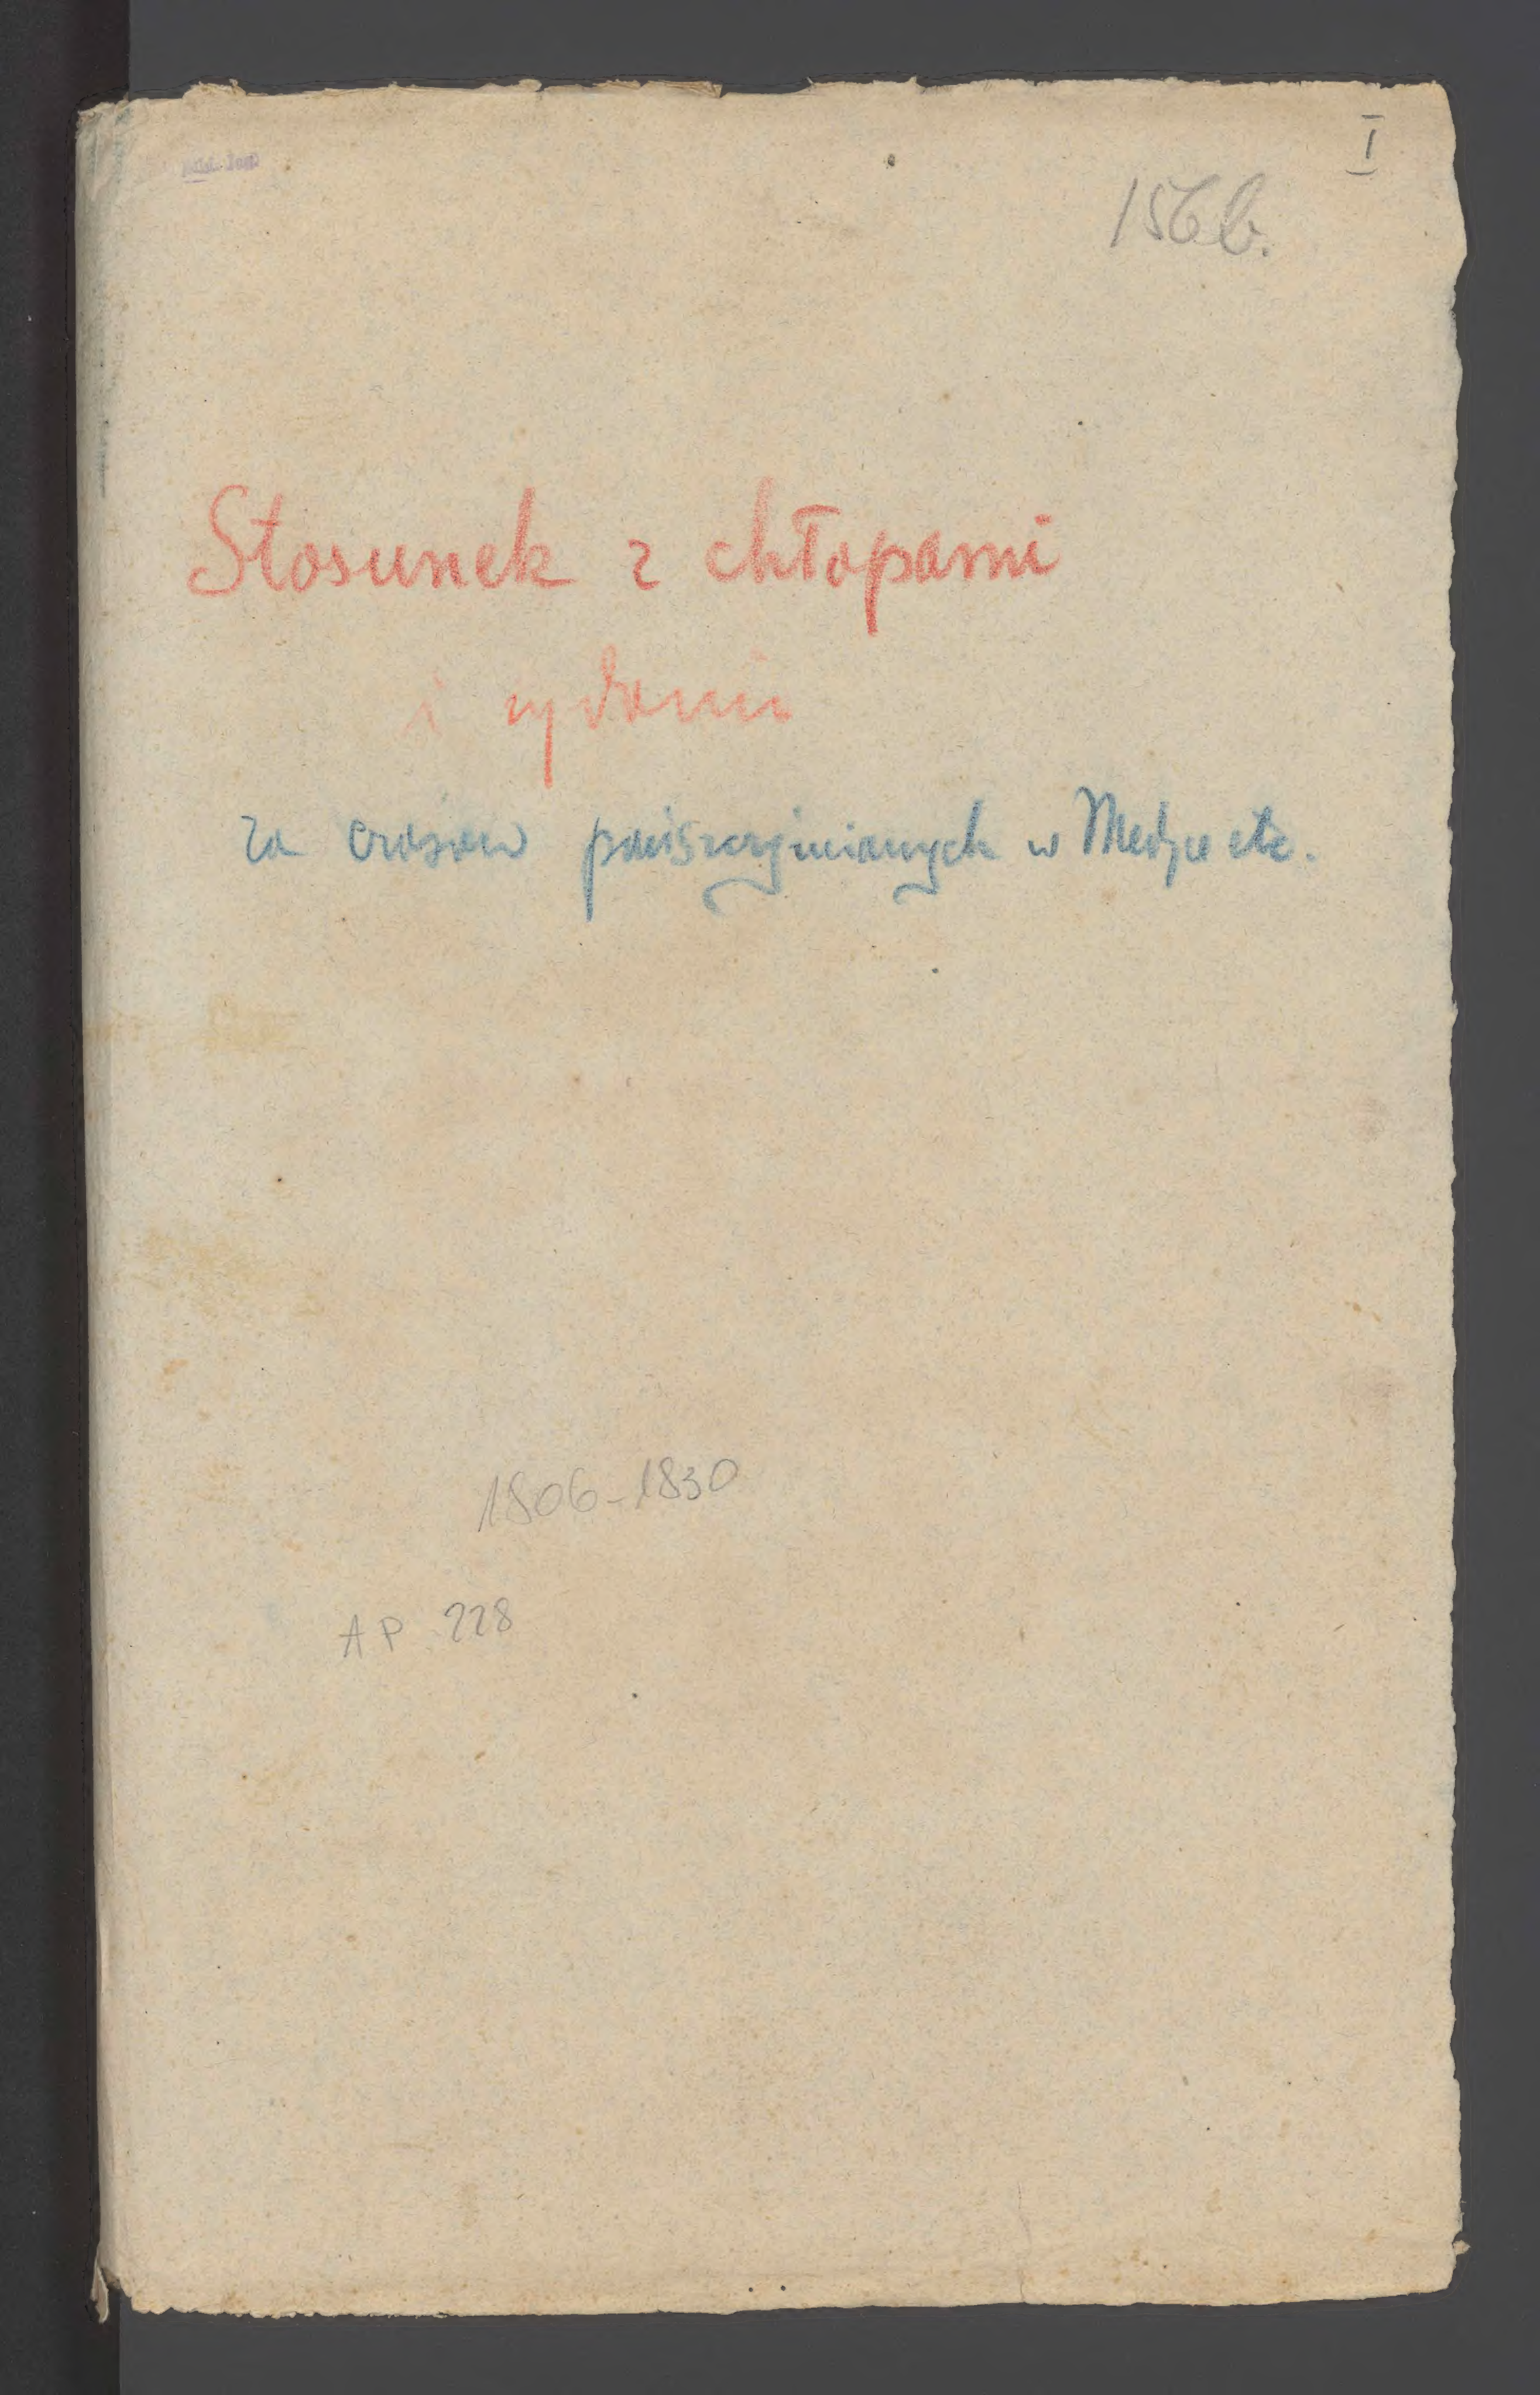 I
156 b.
Stosunek z chłopami
i żydami
za czasów pańszczyźnianych w Medyce etc.
1806-1830
AP 228